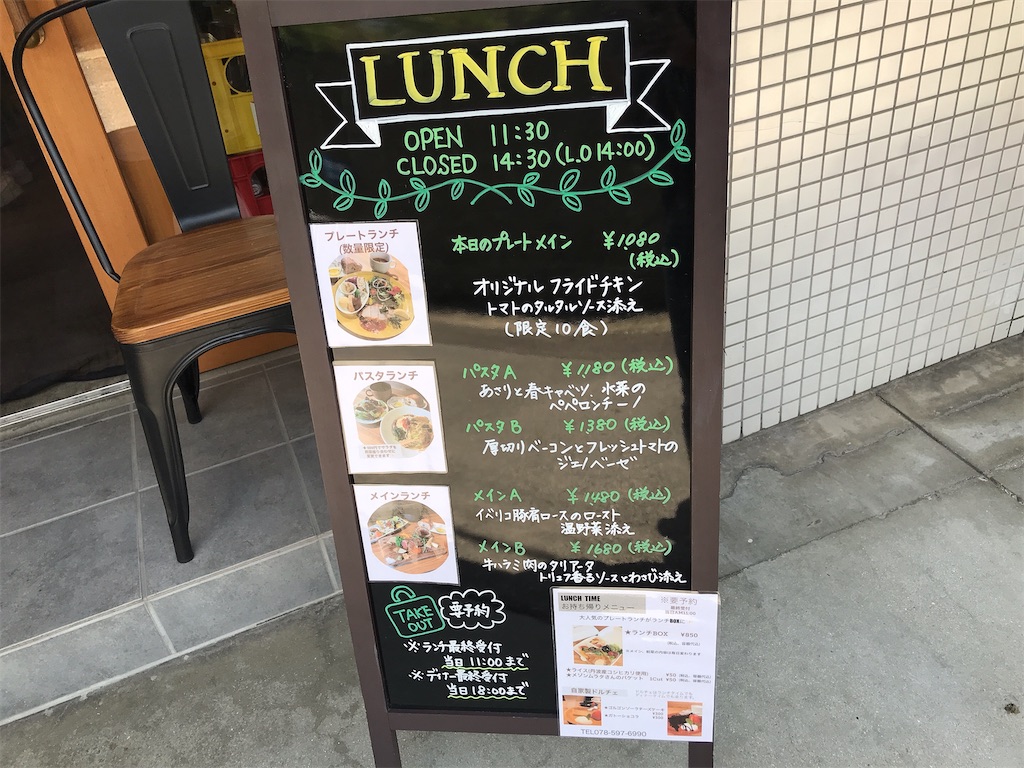 LUNCH
OPEN 11:30
CLOSED 14:30 (L.O 14:00)
プレートランチ
(数量限定)
本日のプレートメイン ¥1080
(税込)
オリジナル フライドチキン
トマトのタルタルソース添え
(限定10食)
パスタランチ
パスタA ¥1180(税込)
あさりと春キャベツ、水菜の
ペペロンチーノ
パスタB ¥1380(税込)
厚切りベーコンとフレッシュトマトの
ジェノベーゼ
メインランチ
メインA ¥1480(税込)
イベリコ豚肩ロースのロースト
温野菜添え
メインB ¥1680(税込)
牛ハラミ肉のタリアータ
トリュフ香るソースとわさび添え
TAKE OUT
要予約
※ランチ最終受付
当日 11:00まで
※ディナー最終受付
当日 18:00まで
LUNCH TIME
お持ち帰りメニュー
※要予約
最終受付
当日AM11:00
大人気のプレートランチがランチBOXに
★ランチBOX ¥850
★ライス(丹波産コシヒカリ使用) ¥50
★メゾンムラタさんのバケット 1Cut ¥60
自家製ドルチェ
★ゴルゴンゾーラチーズケーキ
★ガトーショコラ
TEL078-597-6990